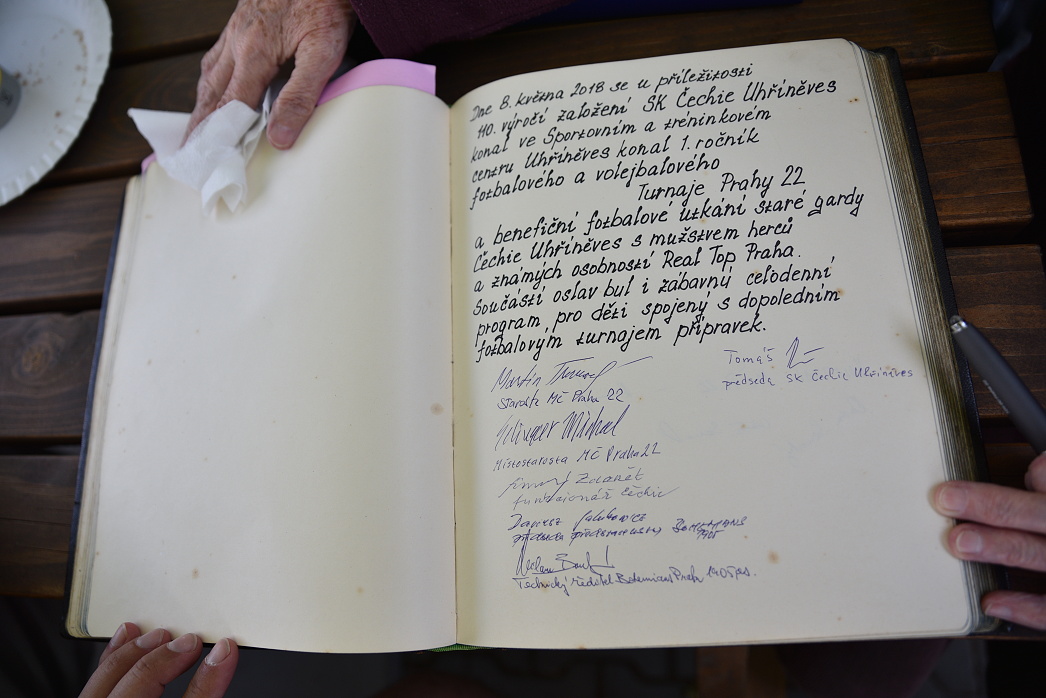 Dne 8. května 2018 se u příležitosti
110. výročí založení SK Čechie Uhříněves
konal ve Sportovním a tréninkovém
centru Uhříněves konal 1. ročník
fotbalového a volejbalového
Turnaje Prahy 22
a benefiční fotbalové utkání staré gardy
Čechie Uhříněves s mužstvem herců
a známých osobností Real Top Praha.
Součastí oslav byl i zábavný celodenní
program, pro děti spojený s dopoledním
fotbalovým turnajem přípravek.
Martin
Starosta MČ Praha 22
Tomáš
předseda SK Čechie Uhříněves
Michal
Místostarosta MČ Praha 22
Zdeněk
funkcionář Čechie
Dariusz Jakubowicz
předseda představenstva BOHEMIANS
1905
Technický ředitel Bohemians Praha 1905 a.s.